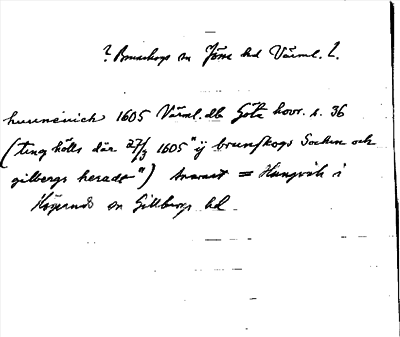 ? Brunskogs sn Jösse hd Värml. l.
hunneuich 1605 Värml. db Göta hovr. s. 36
(ting hölls där 27/3 1605 "ij brunskogs Socken och
gilbergs heradt") = Hungvik i
Högeruds sn Gillbergs hd